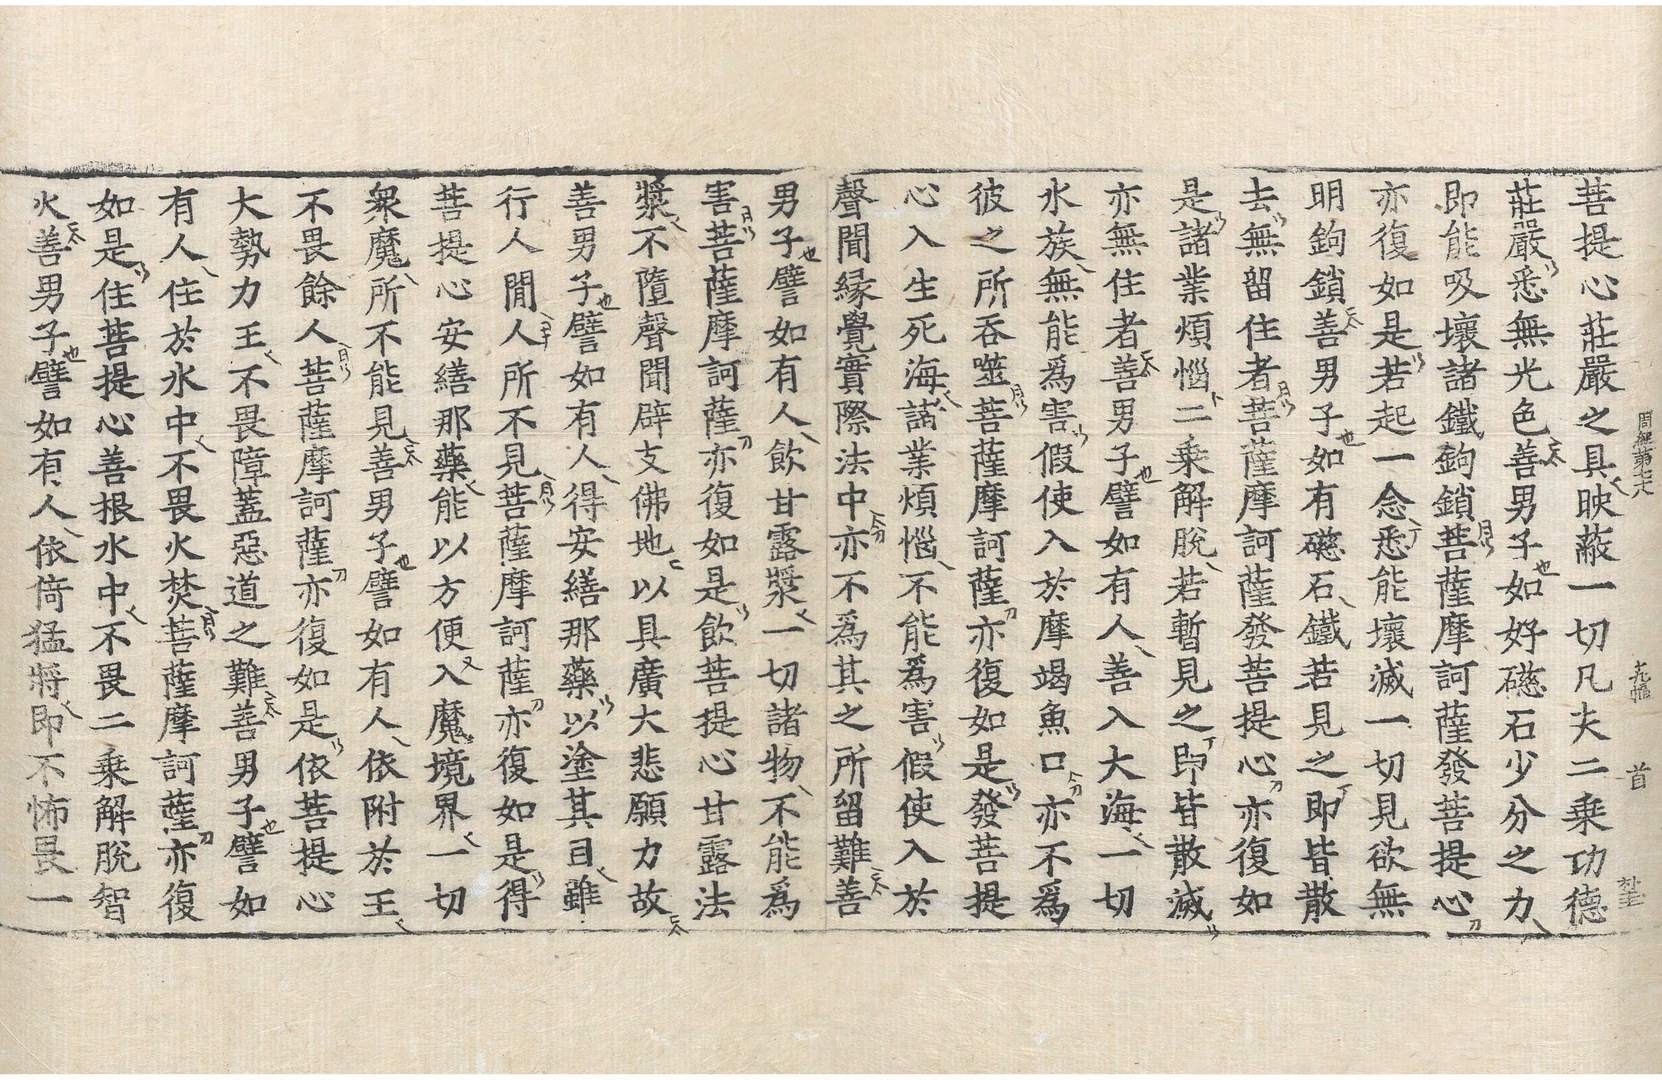 周經第七十八 十九幅 首
菩提心莊嚴之具映蔽一切凡夫二乗功德
莊嚴悉無光色善男子如好礠石少分之力
即能吸壞諸鐵鉤鎖菩薩摩訶薩發菩提心
亦復如是若起一念悉能壞滅一切見欲無
明鉤鎖善男子如有礠石鐵若見之即皆散
去無留住者菩薩摩訶薩發菩提心亦復如
是諸業煩惱二乗解脫若暫見之即皆散滅
亦無住者善男子譬如有人善入大海一切
水族無能爲害假使入於摩竭魚口亦不爲
彼之所吞噬菩薩摩訶薩亦復如是發菩提
心入生死海諸業煩惱不能爲害假使入於
聲聞緣覺實際法中亦不爲其之所留難善
男子譬如有人飮甘露漿一切諸物不能爲
害菩薩摩訶薩亦復如是飮菩提心甘露法
漿不墮聲聞辟支佛地以具廣大悲願力故
善男子譬如有人得安繕那藥以塗其目雖
行人閒人所不見菩薩摩訶薩亦復如是得
菩提心安繕那藥能以方便入魔境界一切
衆魔所不能見善男子譬如有人依附於王
不畏餘人菩薩摩訶薩亦復如是依菩提心
大勢力王不畏障蓋惡道之難善男子譬如
有人住於水中不畏火焚菩薩摩訶薩亦復
如是住菩提心善根水中不畏二乗解脫智
火善男子譬如有人依倚猛將即不怖畏一